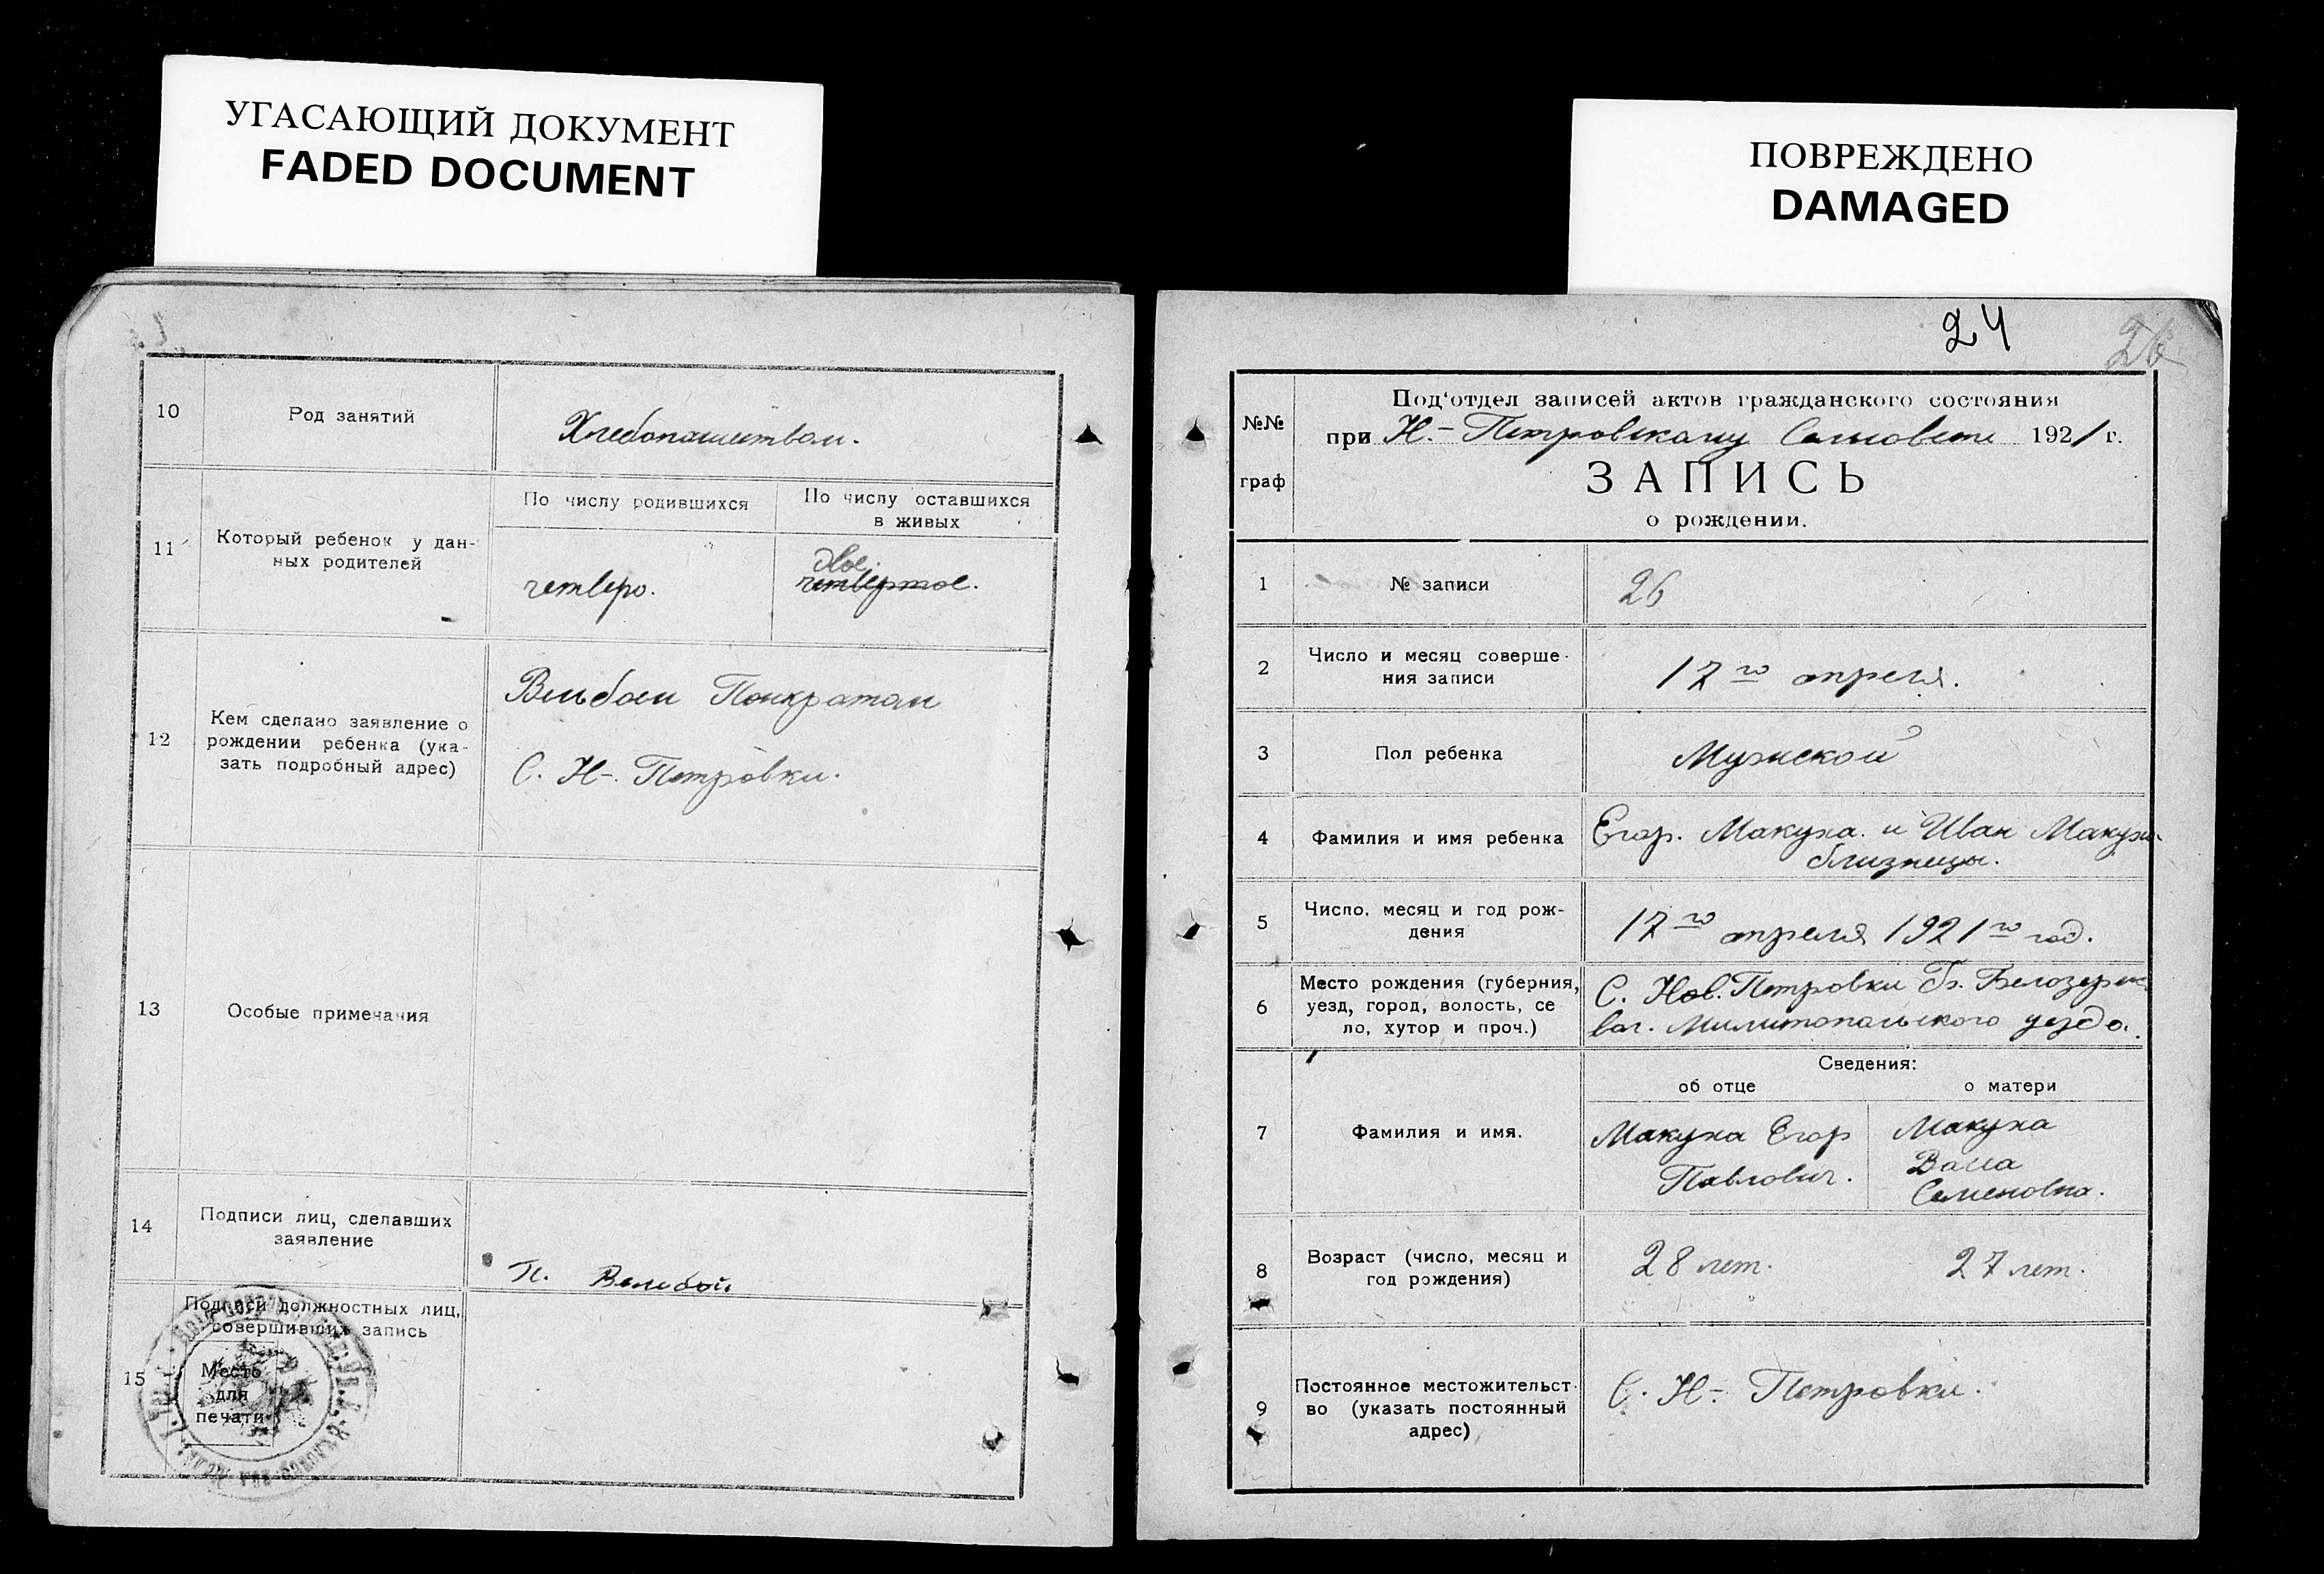 УГАСАЮЩИЙ ДОКУМЕНТ
FADED DOCUMENT
ПОВРЕЖДЕНО
DAMAGED
10
Род занятий
Хлебопашеством.
11
Который ребенок у дан-
ных родителей
По числу родившихся
четверо.
По числу оставшихся
в живых
двое.
четвертое.
12
Кем сделано заявление о
рождении ребенка (ука-
зать подробный адрес)
Панкратом
С. Н-. Петровки.
13
Особые примечания
14
Подписи лиц, сделавших
заявление
П. Велибой
15
Подписи должностных лиц,
совершивших запись
Место
для
печати
24
26
№№
граф
Под'отдел записей актов гражданского состояния
при Н.- Петровскому Сельсовете 1921 г.
ЗАПИСЬ
о рождении.
1
№ записи
26
2
Число и месяц соверше-
ния записи
17 го апреля.
3
Пол ребенка
Мужской
4
Фамилия и имя ребенка
Егор. Макуха. и Иван Макуха
близнецы.
5
Число, месяц и год рож-
дения
17 го апреля 1921 го год.
6
Место рождения (губерния,
уезд, город, волость, се
ло, хутор и проч.)
С. Нов. Петровки Бг. Белозерск.
вол. Милитопольского уезда.
7
Фамилия и имя.
Сведения:
об отце
о матери
Макуха Егор
Павлович.
Макуха
Васса
Семеновна.
8
Возраст (число, месяц и
год рождения)
28 лет.
27 лет.
9
Постоянное местожительст-
во (указать постоянный
адрес)
С. Н-. Петровки.